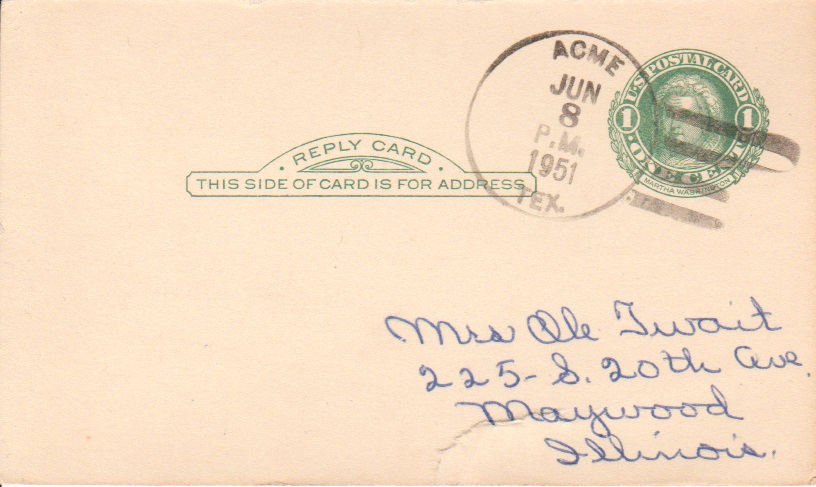 ACME
JUN
8
P.M.
1951
TEX.
U.S. POSTAL CARD
1 1
· ONE CENT ·
MARTHA WASHINGTON
· REPLY CARD ·
THIS SIDE OF CARD IS FOR ADDRESS
Mrs Ole Twait
225 - S. 20th Ave.
Maywood
Illinois.